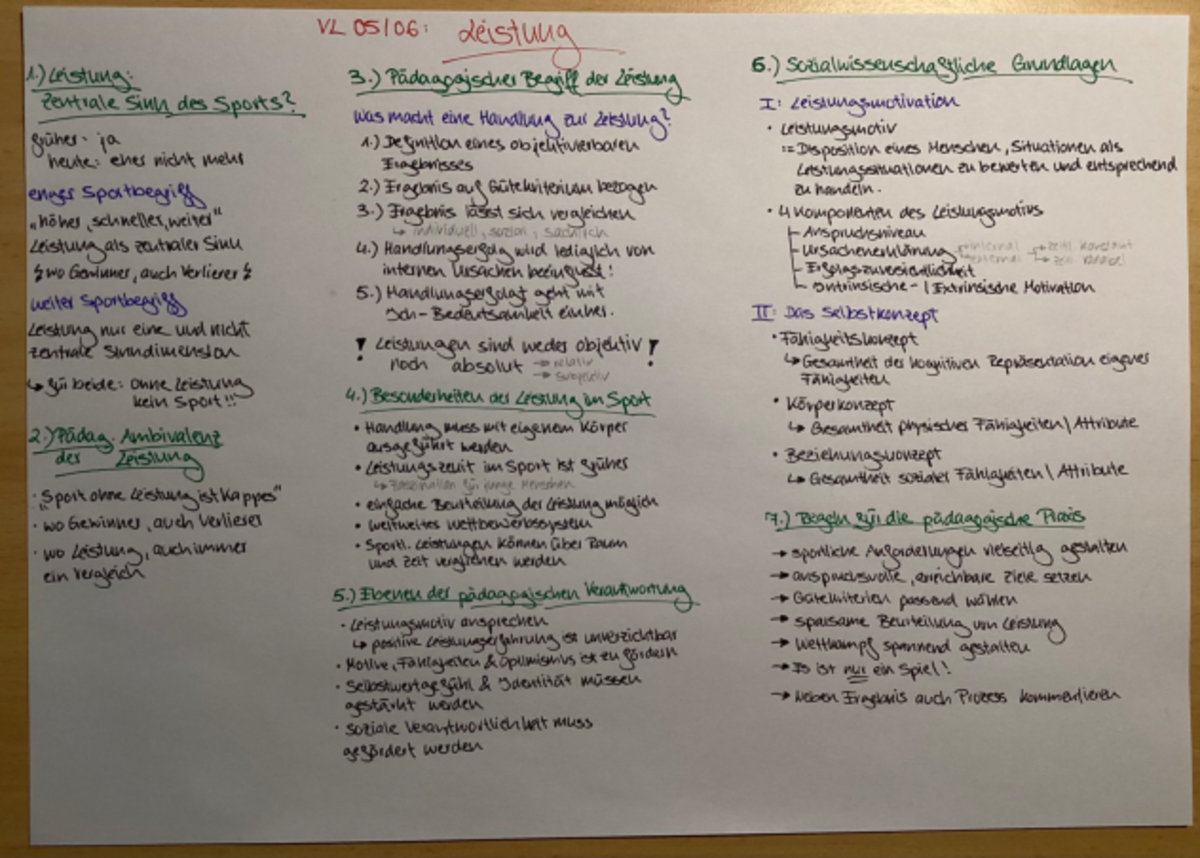 VL 05/06: Leistung
1.) Leistung:
Zentrale Sinn des Sports?
früher: ja
heute: eher nicht mehr
enger Sportbegriff
„höher, schneller, weiter"
Leistung als zentraler Sinn
↯ wo Gewinner, auch Verlierer ↯
weiter Sportbegriff
Leistung nur eine und nicht
zentrale Sinndimension
↳ für beide: ohne Leistung
kein Sport!!!
2.) Pädag. Ambivalenz
der Leistung
· „Sport ohne Leistung ist Kappes"
· wo Gewinner, auch Verlierer
· wo Leistung, auch immer
ein Vergleich
3.) Pädagogischer Begriff der Leistung
Was macht eine Handlung zur Leistung?
1.) Definition eines objektivierbaren
Ergebnisses
2.) Ergebnis auf Gütekriterium bezogen
3.) Ergebnis lässt sich vergleichen
↳ individuell, sozial, sachlich
4.) Handlungserfolg wird lediglich von
internen Ursachen beeinflusst!
5.) Handlungserfolg geht mit
Ich-Bedeutsamkeit einher.
! Leistungen sind weder objektiv !
noch absolut → relativ
→ subjektiv
4.) Besonderheiten der Leistung im Sport
• Handlung muss mit eigenem Körper
ausgeführt werden
• Leistungszeit im Sport ist früher
↳ Faszination für junge Menschen
• einfache Beurteilung der Leistung möglich
• weltweites Wettbewerbssystem
• Sportl. Leistungen können über Raum
und Zeit verglichen werden
5.) Ebenen der pädagogischen Verantwortung
· Leistungsmotiv ansprechen
↳ positive Leistungserfahrung ist unverzichtbar
· Motive, Fähigkeiten & Optimismus ist zu fördern
· Selbstwertgefühl & Identität müssen
gestärkt werden
· soziale Verantwortlichkeit muss
gefördert werden
6.) Sozialwissenschaftliche Grundlagen
I: Leistungsmotivation
• Leistungsmotiv
:= Disposition eines Menschen, Situationen als
Leistungssituationen zu bewerten und entsprechend
zu handeln.
• 4 Komponenten des Leistungsmotivs
- Anspruchsniveau
- Ursachenerklärung internal external → zeitl. konstant → zeitl. variabel
- Erfolgszuversichtlichkeit
- Intrinsische- / Extrinsische Motivation
II: Das Selbstkonzept
• Fähigkeitskonzept
↳ Gesamtheit der kognitiven Repräsentation eigener
Fähigkeiten
• Körperkonzept
↳ Gesamtheit physischer Fähigkeiten / Attribute
• Beziehungskonzept
↳ Gesamtheit sozialer Fähigkeiten / Attribute
7.) Regeln für die pädagogische Praxis
→ sportliche Anforderungen vielseitig gestalten
→ anspruchsvolle, erreichbare Ziele setzen
→ Gütekriterien passend wählen
→ sparsame Beurteilung von Leistung
→ Wettkampf spannend gestalten
→ Es ist nur ein Spiel!
→ Neben Ergebnis auch Prozess kommentieren